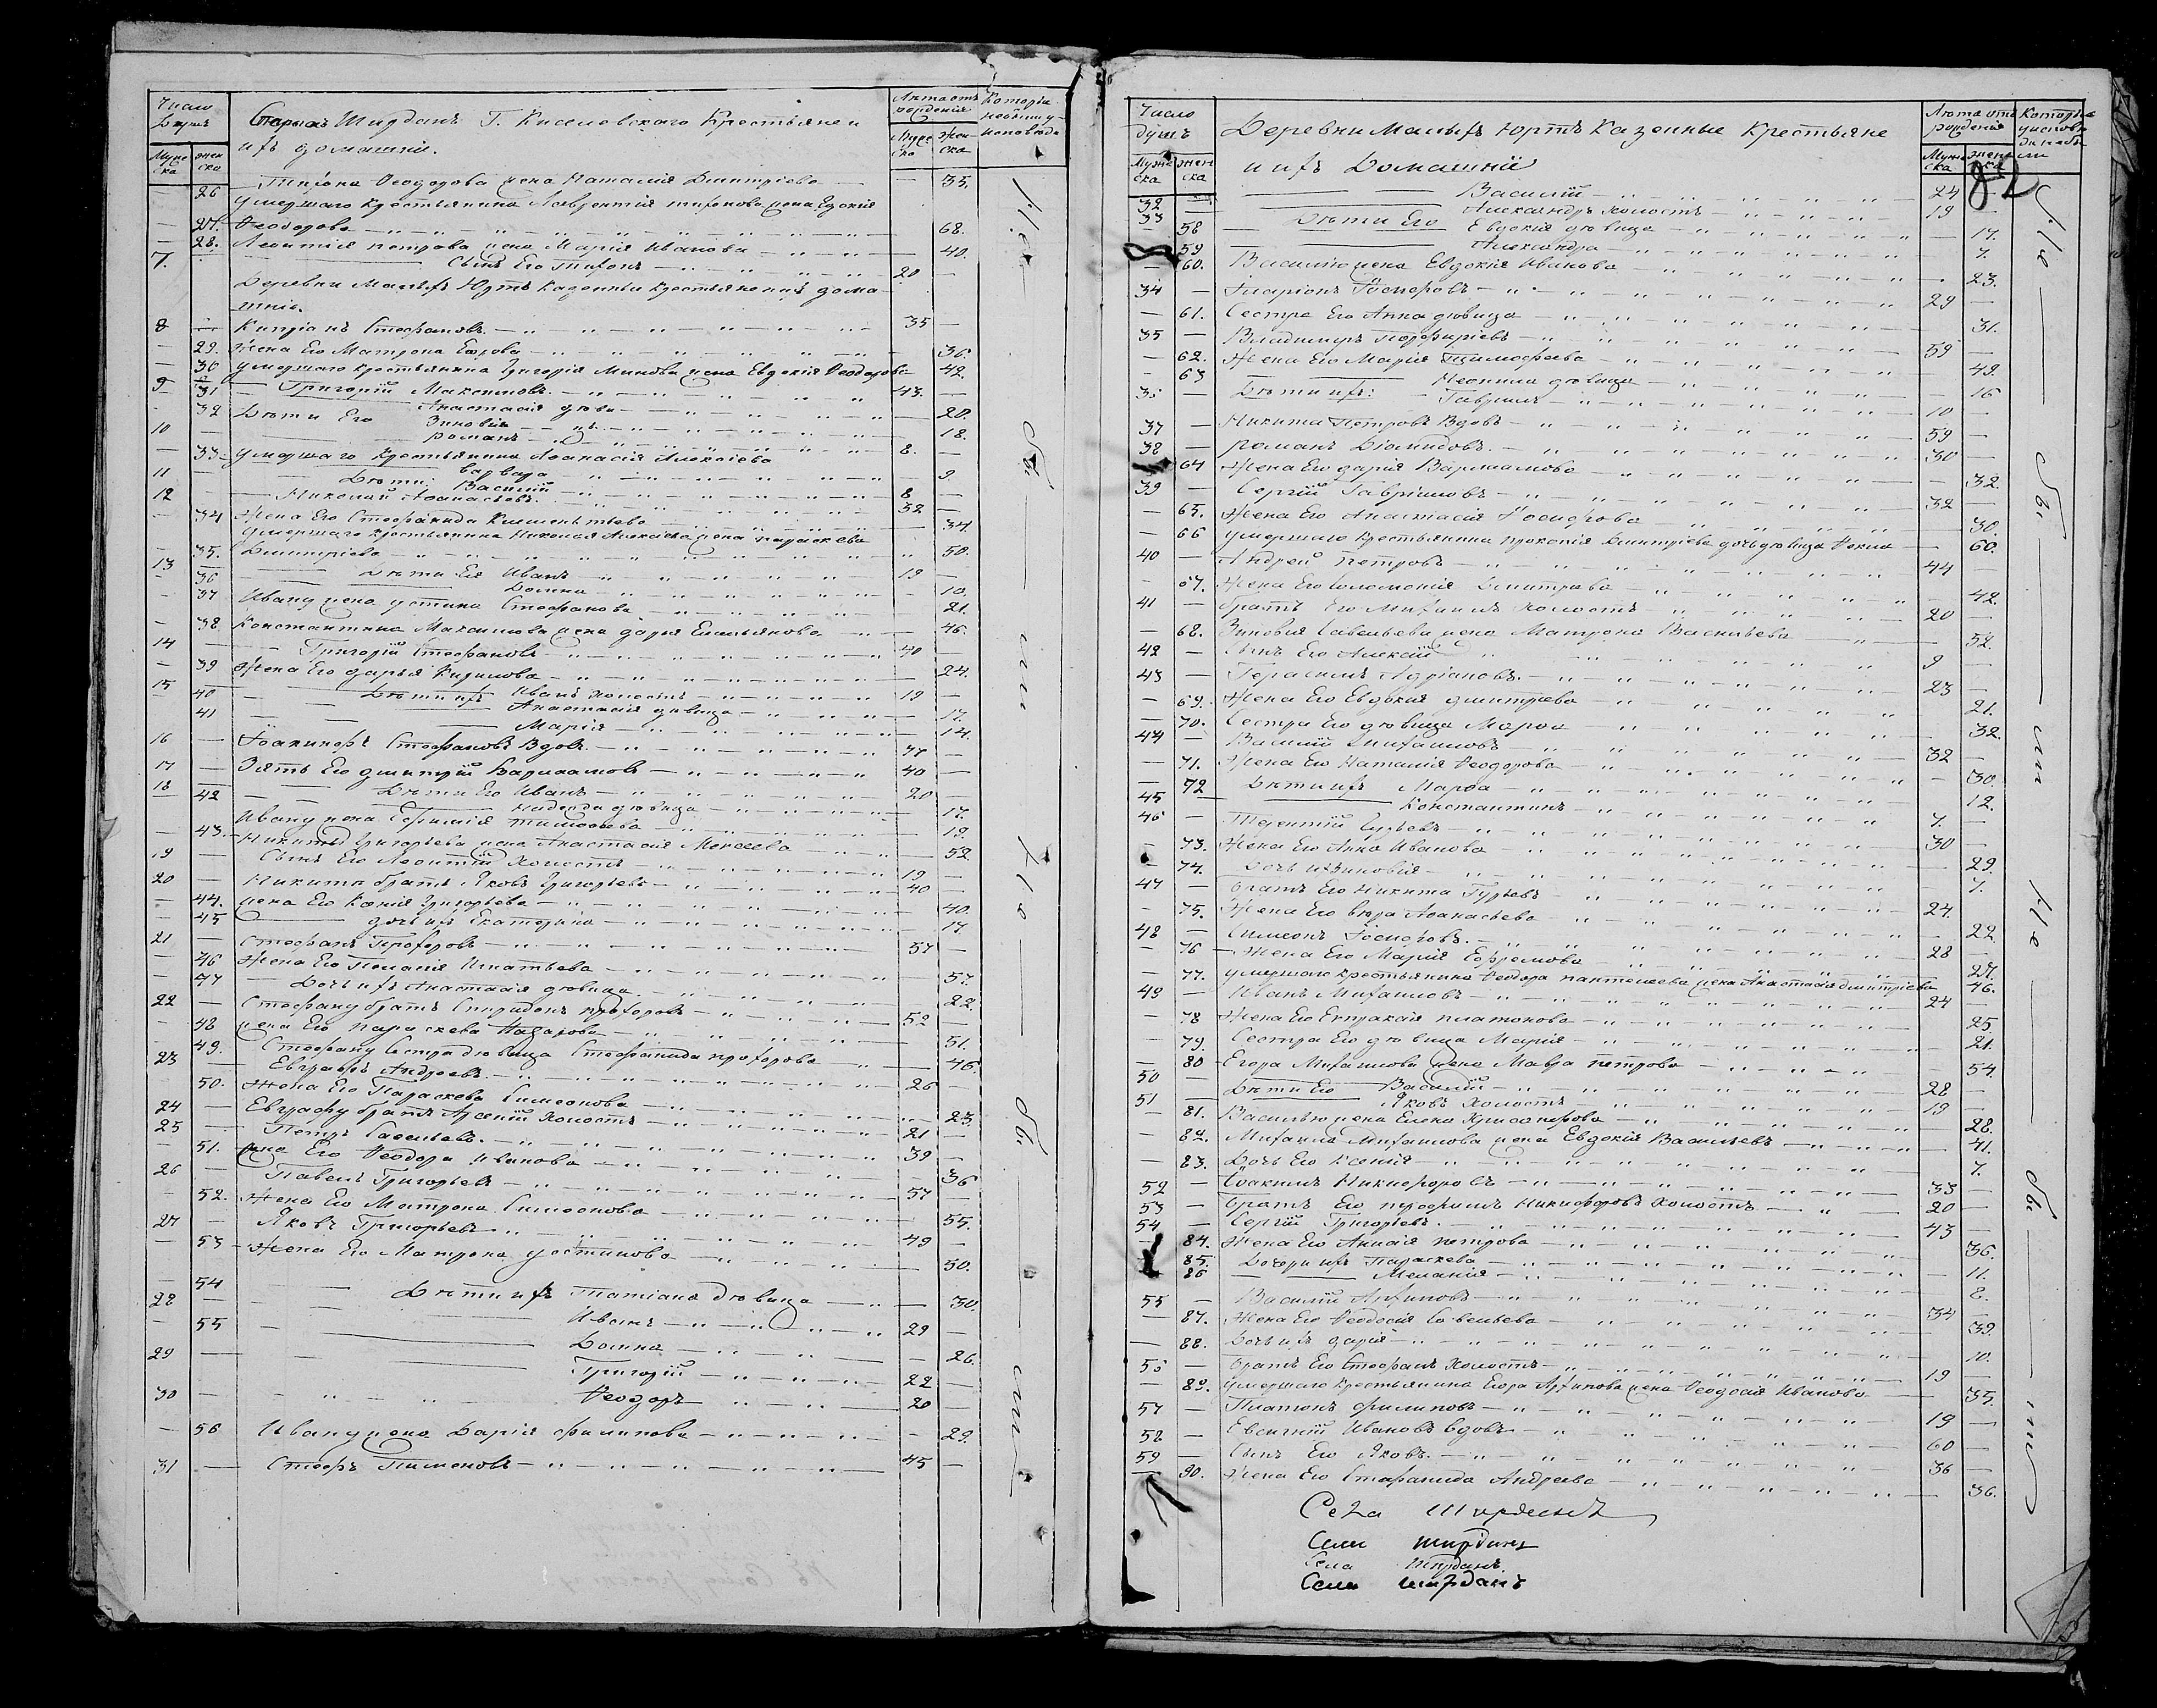 Число душъ
Старыхъ Ширданъ Г. Киселевскаго Крестьяне и
ихъ домашнiи.
Лѣта отъ рожденiя
Муже ска
жен ска
Муже ска
Жен ска
— 26 Тихона Ѳеодорова жена Наталiя Дмитрiева — 35.
умершаго крестьянина Лаврентiя тихонова жена Евдокiя
— 27. Ѳеодорова — 68.
— 28. Леонтiя петрова жена Марiя Иванова — 40.
7. Сынъ Его Тихонъ — 20
Деревни Малыхъ Юртъ Казенныи крестьяне и ихъ дома
шнiе.
8 — Кипрiанъ Стефановъ — 35 —
— 29. Жена Его Матрона Егорова — 36.
— 30 умершаго крестьянина Григорiя Минова жена Евдокiя Ѳеодорова 42.
9 — Григорiй Максимовъ — 43. —
31 Анастасiя дѣви — 20.
32 Дѣти Его Зиновiя — 18.
10 — романъ — 8. —
— 33 умершаго крестьянина Аѳанасiя Алексiева
Дѣти: варвара — 9
11 Василiй — 8 —
12 — Николай Аѳанасьевъ — 32 —
— 34 Жена Его Стефанида Климентьева — 34.
умершаго крестьянина Николая Алексiева жена параскева
— 35. Дмитрiева — 50.
13 — Дѣти Ея Иванъ — 19 —
— 36 Домна — 10.
— 37 Ивану жена устина Стефанова — 21.
— 38 Константина Максимова жена дарья Емельянова — 46.
14 — Григорiй Стефановъ — 40 —
— 39 Жена Его дарья — 24.
15 — Дѣти ихъ Иванъ холостъ — 19 —
40 Анастасiя дѣвица — 17.
41 Марiя — 14.
16 — Iоакинфъ Стефановъ Вдовъ — 77 —
17 — Зять Его дмитрiй Варлаамовъ — 40 —
18 — Дѣти Его Иванъ — 20 —
42 Надежда дѣвица — 17.
Ивану жена Ефимiя тимоѳеева — 19.
— 43. Никиты Григорьева жена Анастасiя Моисеева — 52
19 — Сынъ Его Леонтiй Холостъ — 19 —
20 — Никиты братъ Яковъ Григорьевъ — 40 —
— 44. жена Его Ксенiя Григорьева — 40.
— 45 дочь ихъ Екатерина — 17
21 — Стефанъ Прохоровъ — 57 —
— 46 Жена Его Пелагiя Игнатьева — 57.
— 47 Дочь ихъ Анастасiя дѣвица — 22.
22 — Стефану братъ Спиридонъ прохоровъ — 52 —
— 48 жена Его параскева Назарова — 51.
— 49. Стефану Сестра дѣвица Стефанида прохорова — 46.
23 — Евграфъ Андреевъ — 26
50. Жена Его Параскева Симеонова — 23.
24 — Евграфу братъ Арсенiй Холостъ — 21 —
25 — Петръ Савельевъ — 39 —
— 51. жена Его Ѳеодора Иванова — 36
26 — Павелъ Григорьевъ — 57 —
— 52. Жена Его Матрона Симеонова — 55.
27 — Яковъ Григорьевъ — 49 —
— 53 Жена Его Матрона устинова — 50.
— 54 Дѣти ихъ Татiана дѣвица — 30.
28 — Иванъ — 29 —
— 55 Домна — 26.
29 — Григорiй — 22 —
30 — Ѳеодоръ — 20 —
— 56 Ивану жена Дарiя филипова — 29.
31 — Пимоновъ — 45 —
Не — бы — ли
Не — бы — ли
Число душъ
Деревни Малыхъ Юртъ Казенные крестьяне
и ихъ Домашнiй
Лѣта отъ рожденiя
Муже ска
жен ска
Муже ска
женс ска
82
32 — Василiй — 24 —
33 — Александръ холостъ — 19 —
58 Дѣти Его Евдокiя дѣвица — 17.
59 Александра — 7.
— 60. Василiю жена Евдокiя Иванова — 23.
34 — Иларiонъ Iосифовъ — 29 —
— 61. Сестра Его Анна дѣвица — 31.
35 — Владимиръ порфирiевъ — 59 —
— 62. Жена Его Марiя Тимоѳеева — 49.
— 63 Дѣти ихъ: Неонила дѣвица — 16
36 — Гаврiилъ — 10 —
37 — Никита Петровъ Вдовъ — 59 —
38 — романъ Дiомидовъ — 30 —
64 Жена Его дарiя Варлаамова — 32.
39 — Сергiй Гаврiиловъ — 32 —
— 65. Жена Его Анастасiя Iосифова — 30.
— 66 умершаго крестьянина прокопiя Дмитрiева дочь дѣвица Ѳекла — 60.
40 — Андрей Петровъ — 44 —
— 67. Жена Его Соломонiя Дмитрiева — 42.
41 — братъ Его Михаилъ Холостъ — 20 —
— 68. Зиновiя Савельева жена Матрона Васильева — 52.
42 — Сынъ Его Алексiй — 9 —
43 — Герасимъ Адрiановъ — 23 —
— 69. Жена Его Евдокiя дмитрiева — 21.
— 70. Сестра Его дѣвица Марѳа — 32.
44 — Василiй Михаиловъ — 32 —
— 71. Жена Его Наталiя Ѳеодорова — 30.
— 72 Дѣти ихъ Марѳа — 12.
45 — Константинъ — 7. —
46 — Терентiй Гурьевъ — 30 —
— 73. Жена Его Анна Иванова — 29.
— 74. дочь ихъ Зиновiя — 7.
47 — братъ Его Никита Гурьевъ — 24. —
— 75. Жена Его вѣра Аѳанасьева — 22
48 — Симеонъ Iосифовъ — 28 —
— 76 Жена Его Марiя Ефремова — 27.
— 77. умершаго крестьянина Ѳеодора пантелеева жена Анастасiя дмитрiева 46.
49 — Иванъ Михаиловъ — 24 —
— 78 Жена Его Евпраксiя платонова — 25
— 79. Сестра Его дѣвица Марiя — 21.
— 80 Егора Михаилова жена Мавра петрова — 54
50 — Дѣти Его Василiй — 28 —
51 — Яковъ Холостъ — 19 —
— 81. Василiю жена Елена Христофорова — 28.
— 82. Михаила Михаилова жена Евдокiя Васильевъ — 41.
— 83. Дочь Его Ксенiя — 7.
52 — Iоакимъ Никифоровъ — 33 —
53 — братъ Его Никифоровъ Холостъ — 20 —
54 — Сергiй Григорьевъ — 43
— 84. Жена Его Анисiя петрова — 36.
85. Дочери ихъ Параскева — 11.
86 Меланiя — 8.
55 — Василiй Архиповъ — 34 —
— 87. Жена Его Ѳеодосiя Савельева — 39.
— 88. Дочь ихъ дарiя — 10.
56 — братъ Его Стефанъ Холостъ — 19 —
— 89. умершаго крестьянина Егора Архипова жена Ѳеодосiя Иванова — 35.
57 — Платонъ филиповъ — 19 —
58 — Евсигнiй Ивановъ вдовъ — 60 —
59 — Сынъ Его Яковъ — 36 —
— 90. Жена Его Стефанида Андреева — 36.
Не — бы — ли
Не — бы — ли
Села Ширданъ
Села ширданъ
Села Ширданъ
Села ширданъ